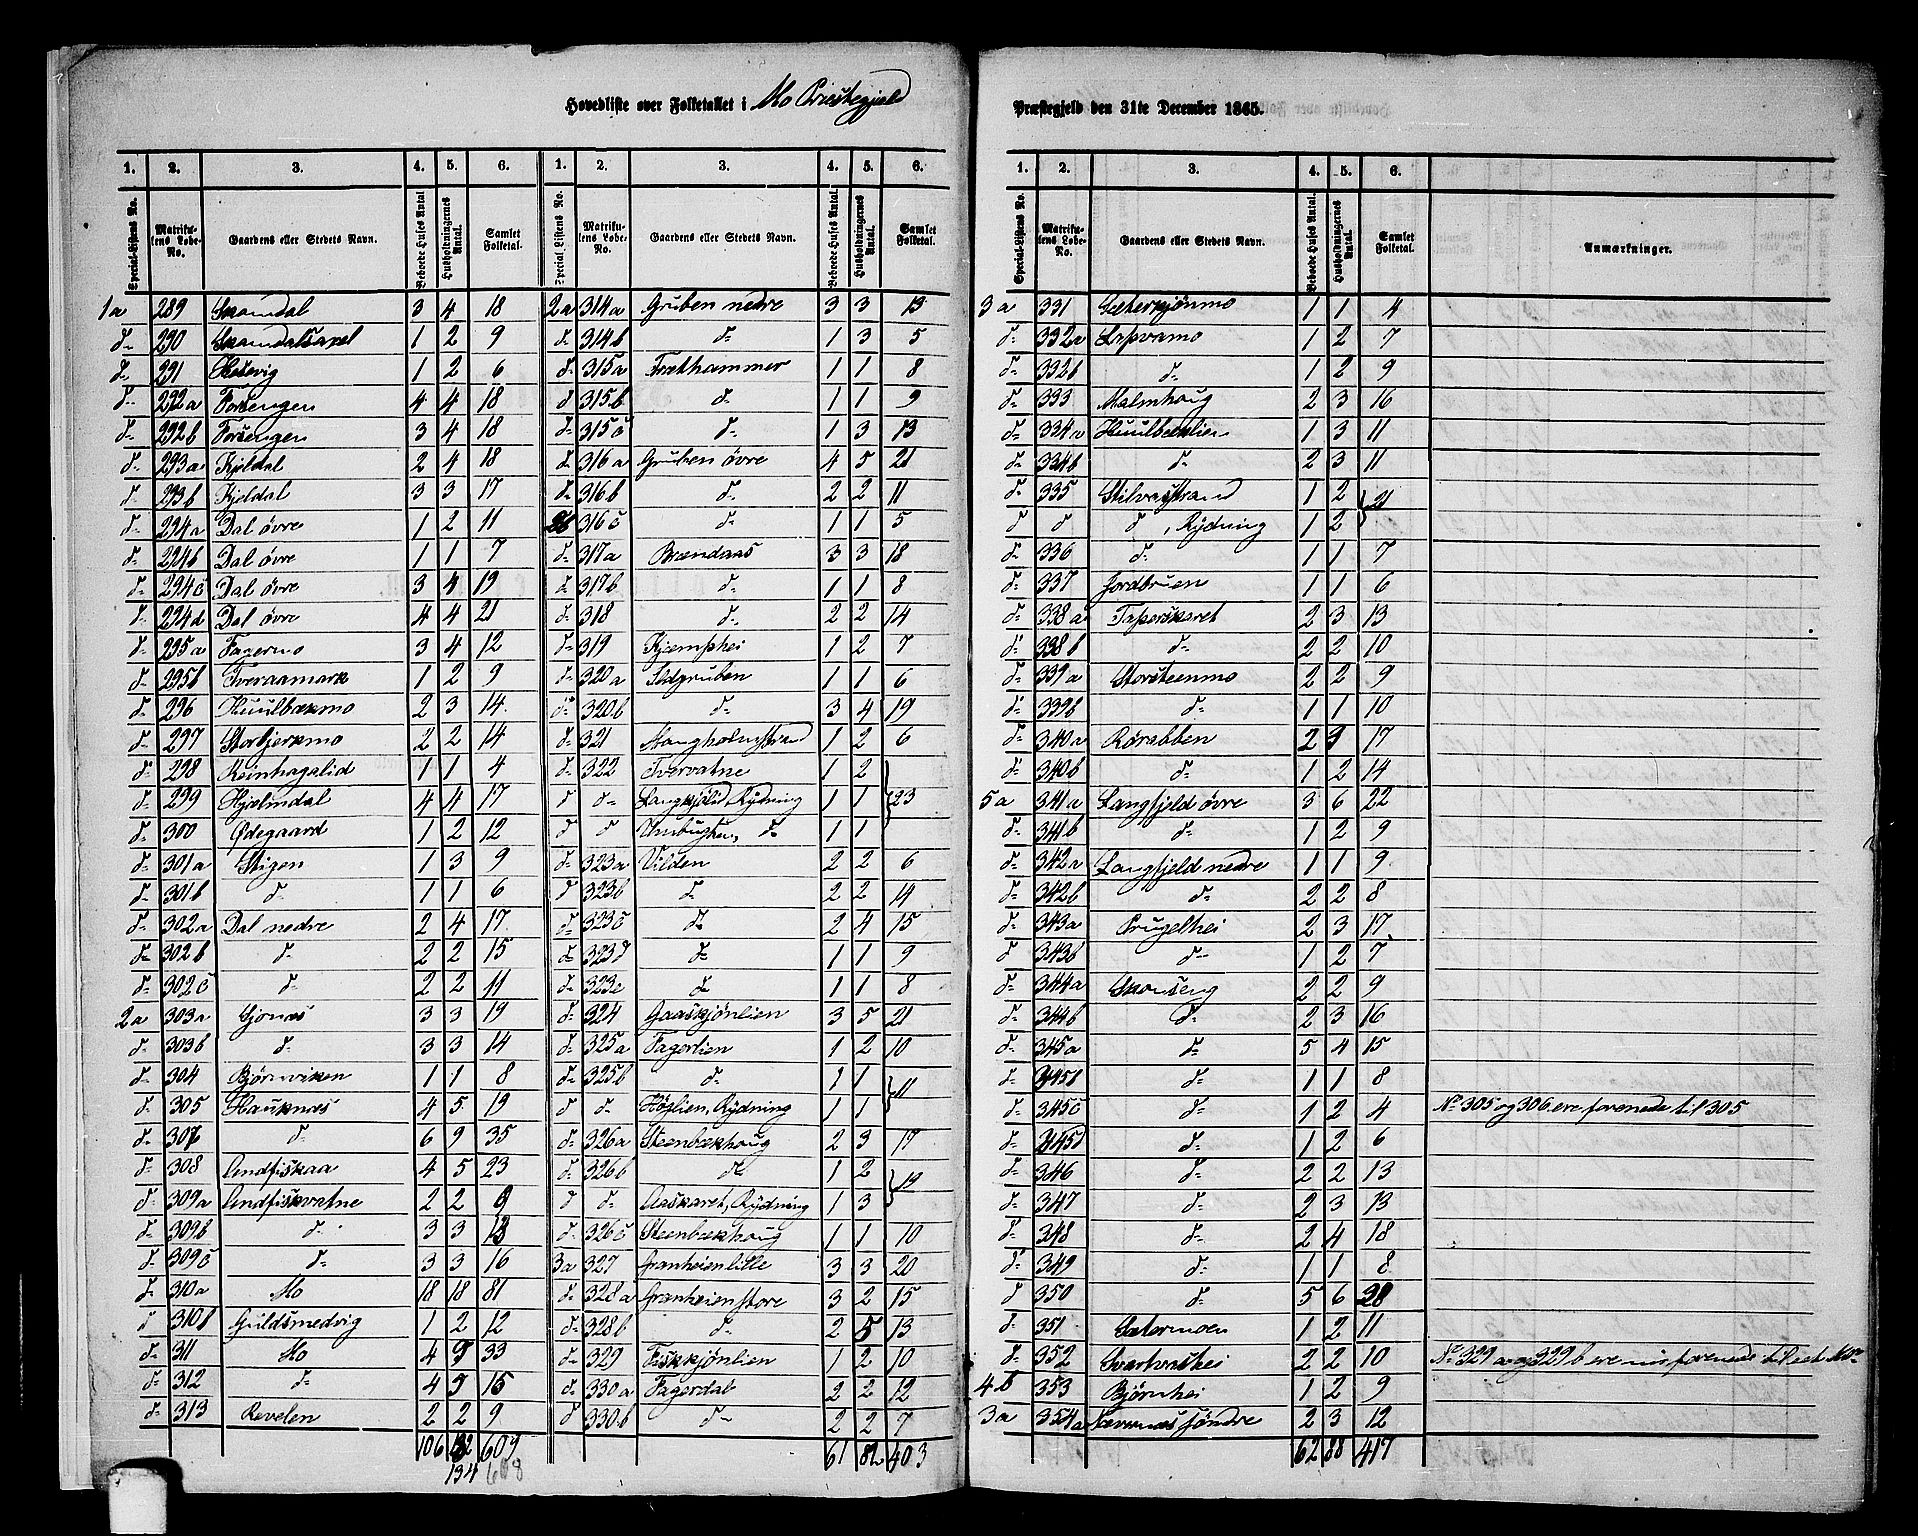 Hovedliste over Folketallet i Mo Præstegjeld
Præstegjeld den 31te December 1865.
1. 2. 3. 4. 5. 6. 1. 2. 3. 4. 5. 6.
Special-Listens No. Matrikulens Løbe-No. Gaardens eller Stedets Navn. Beboede Huses Antal Husholdningernes Antal. Samlet Folketal. Special-Listens No. Matrikulens Løbe-No. Gaardens eller Stedets Navn. Beboede Huses Antal. Husholdningernes Antal. Samlet Folketal.
1a 289 Skamdal 3 4 18
d= 290 Skamdalsaxel 1 2 9
d= 291 Hestvig 1 2 6
d= 292a Forsengen 4 4 18
d= 292b Forsengen 3 4 18
d= 293a Kjeldal 2 4 18
d= 293b Kjeldal 3 3 17
d= 294a Dal øvre 1 2 11
d= 294b Dal øvre 1 1 7
d= 294c Dal øvre 3 4 19
d= 294d Dal øvre 4 4 21
d= 295a Fagermo 3 4 12
d= 295b Tveraamark 1 2 9
d= 296 Huulbækmo 2 3 14
d= 297 Storbjerkmo 2 2 14
d= 298 Reinhagalid 1 1 4
d= 299 Hjelmdal 4 4 17
d= 300 Ødegaard 1 2 12
d= 301a Stigen 1 3 9
d= 301b d= 1 1 6
d= 302a Dal nedre 2 4 17
d= 302b d= 2 2 15
d= 302c d= 2 2 11
2a 303a Sjonæs 3 3 19
d= 303b d= 3 3 14
d= 304 Bjørnviken 1 1 8
d= 305 Hauknæs 4 5 19
d= 307 d= 6 9 35
d= 308 Andfiskaa 4 5 23
d= 309a Andfiskvatne 2 2 9
d= 309b d= 3 3 13
d= 309c d= 3 3 16
d= 310a Mo 18 18 81
d 310b Guldsmedvig 1 2 12
d= 311 Mo 4 33
d= 312 d= 4 15
d= 313 Revelen 2 2 9
106 132 609
134 608
2a 314a Gruben nedre 3 3 13
d= 314b d= 1 3 5
d= 315a Trækhammer 1 1 8
d 315b d= 1 1 9
d= 315c d= 1 3 13
d= 316a Gruben øvre 4 5 21
d= 316b d= 2 2 11
2b 316c d= 1 1 5
d= 317a Brændaas 3 3 18
d= 317b d= 1 1 8
d= 318 d= 2 2 14
d= 319 Kjemphei 1 2 7
d= 320a Ildgruben 1 1 6
d= 320b d= 3 4 19
d= 321 Langholmstrand 1 2 6
d= 322 Tvervatne 1 2
d d= Langkjølid, Rydning 1 1 23
d d , d= 1 1
d= 323a Vilden 2 2 6
d 323b d= 2 2 14
d= 323c d= 2 4 15
d= 323d d= 1 1 9
d= 323e d= 1 1 8
d= 324 Gaaskjønlien 3 5 21
d= 325a Fagerlien 1 2 10
d= 325b d= 1 1
d d= Høglien, Rydning 1 1 11
d= 326a Steenbækhoug 2 3 17
d= 326b d= 1 2
d d= Aaskaret, Rydning 1 3 19
d= 326c Steenbækhoug 1 1 10
3a 327 Granheien lille 3 3 20
d= 328a Granheien store 3 2 15
d= 328b d= 2 5 13
d= 329 Fiskkjønlien 1 2 10
d= 330a Fagerdal 2 2 12
d 330b d= 2 2 7
61 82 403
1. 2. 3. 4. 5. 6.
Special-Listens No. Matrikulens Løbe-No. Gaardens eller Stedets Navn. Beboede Huses Antal. Husholdningernes Antal. Samlet Folketal. Anmærkninger.
3a 331 Sæterkjønmo 1 1 4
d= 332a Lapvamo 1 2 7
d= 332b d= 1 2 9
d= 333 Malmhoug 2 3 16
d= 334a Huulbæklien 1 3 11
d= 334b d= 2 3 11
d= 335 Stilvastrand 1 2
d d d, Rydning 1 2 21
d= 336 d= 1 1 7
d= 337 Jordbruen 1 1 6
d= 338a Taperskaret 2 3 13
d= 338b d= 2 2 10
d= 339a Storsteenmo 2 2 9
d= 339b d= 1 1 10
d= 340a Rørabben 2 17
d= 340b d= 1 2 14
5a 341a Langfjeld øvre 3 6 22
d= 341b d= 1 2 9
d= 342a Langfjeld nedre 1 1 9
d= 342b d= 2 2 8
d= 343a Prugelhei 2 3 17
d 343b d= 1 2 7
d= 344a Skonseng 2 2 9
d= 344b d= 2 3 16
d= 345a d= 5 4 15
d= 345b d= 1 1 8
d= 345c d= 1 2 4 No 305 og 306 ere forenede til 305
d= 345d d= 1 2 6
d= 346 d= 2 2 13
d= 347 d= 2 3 13
d= 348 d= 2 4 18
d= 349 d= 1 1 8
d 350 d= 5 6 28
d= 351 Sætermoen 1 2 11
d= 352 Svartvashei 2 2 10 No 329 a og 329 b ere nu forenede til eet No
4b 353 Bjørnhei 1 2 9
3a 354a Nævernæs søndre 2 3 12
62 88 417